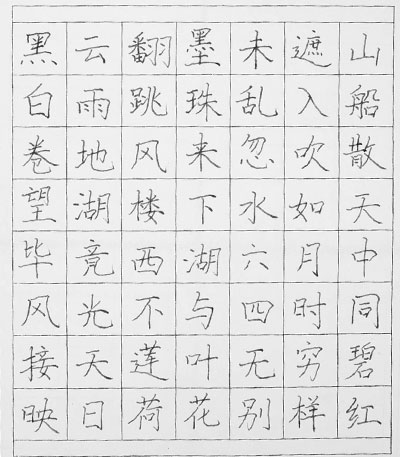 黑云翻墨未遮山
白雨跳珠乱入船
卷地风来忽吹散
望湖楼下水如天
毕竟西湖六月中
风光不与四时同
接天莲叶无穷碧
映日荷花别样红